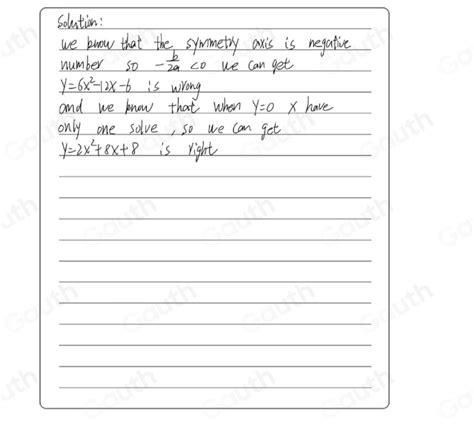 Solution:
we know that the symmetry axis is negative
number so -b/2a <0 we can get
y=6x²-12x-6 is wrong
and we know that when y=0 x have
only one solve, so we can get
y=2x²+8x+8 is right
Gauth